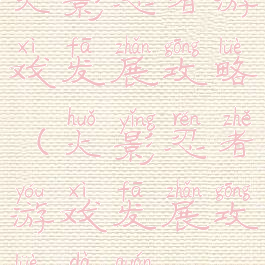 火影忍者游
xì fā zhǎn gōng lüè
戏发展攻略
huǒ yǐng rěn zhě
(火影忍者
yóu xì fā zhǎn gōng
游戏发展攻
lüè dà quán